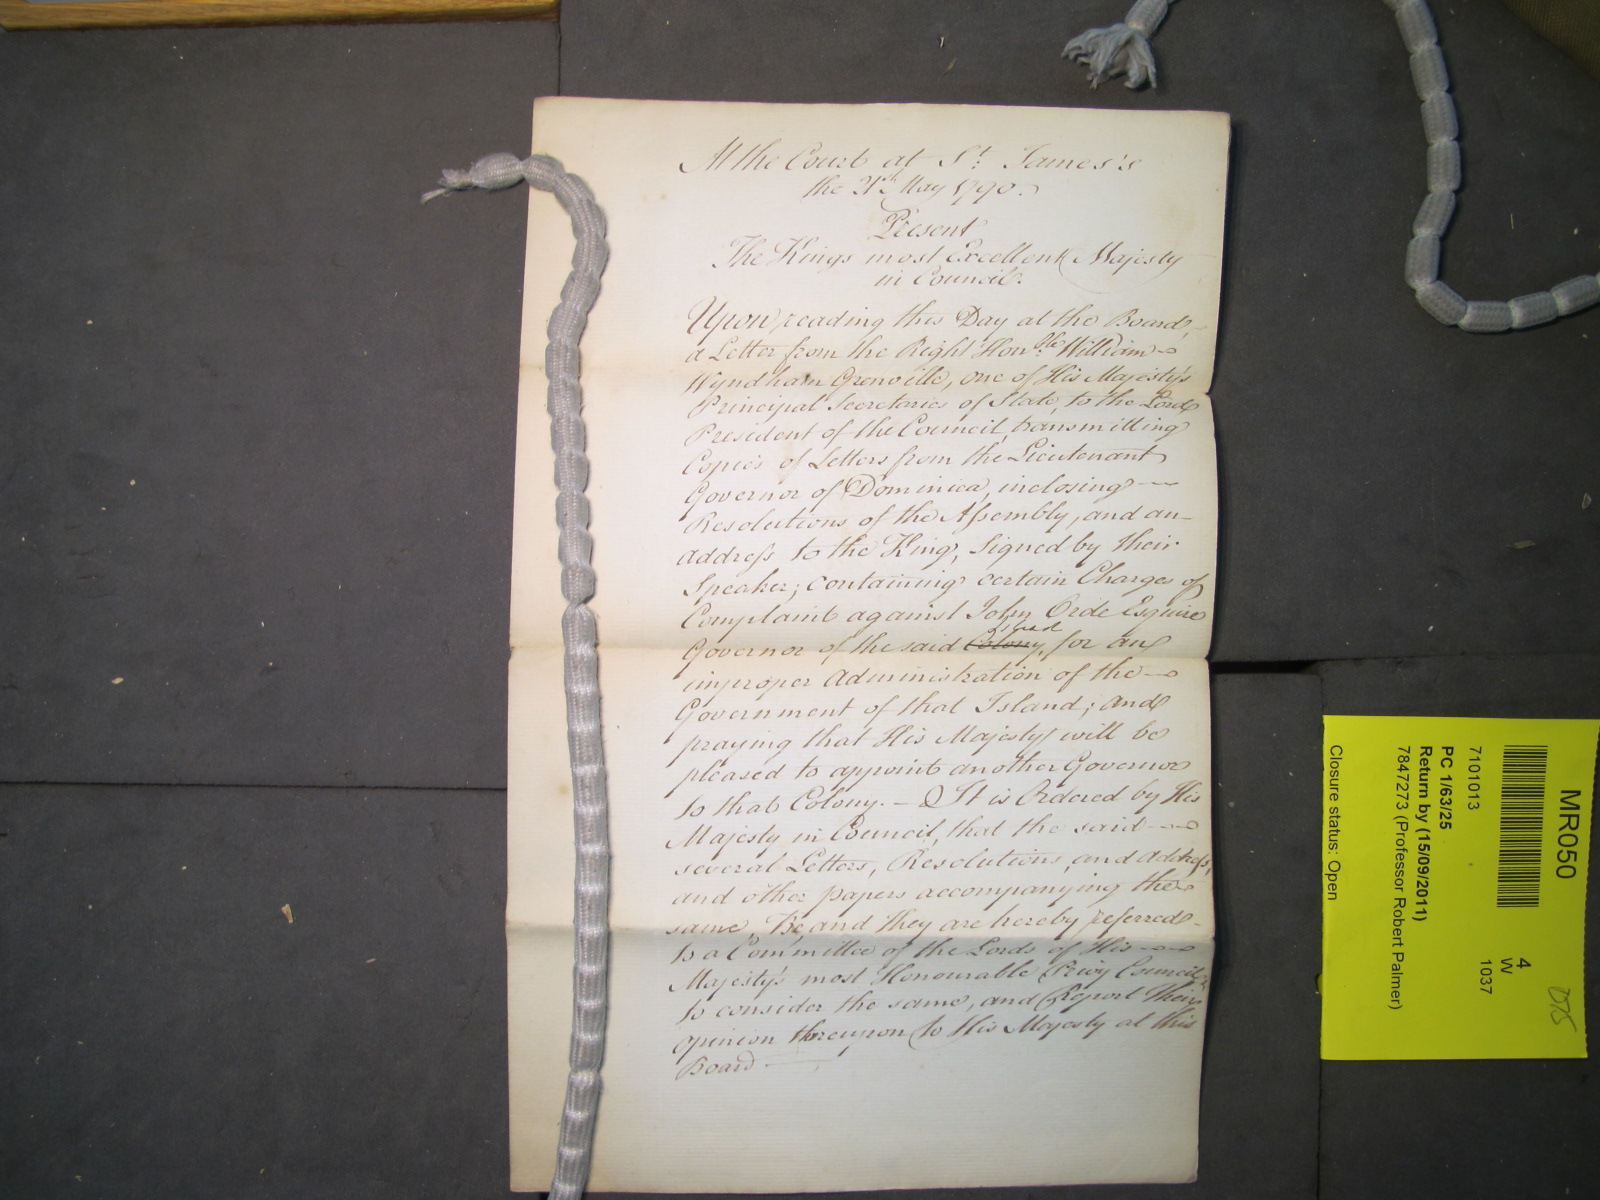 At the Court at St: James's
the 21st May 1790.
Present
The Kings most Excellent Majesty
in Council.
Upon reading this Day at the Board,
a Letter from the Right Honble William
Wyndham Grenville, one of His Majesty's
Principal Secretaries of State, to the Lord
President of the Council, transmitting
Copies of Letters from the Lieutenant
Governor of Dominica, inclosing
Resolutions of the Assembly, and an
address to the King, Signed by their
Speaker; containing certain Charges of
Complaint against John Orde Esquire
Island
Governor of the said Colony, for an
improper Administration of the
Government of that Island; and
praying that His Majesty will be
pleased to appoint another Governor
to that Colony. — It is Ordered by His
Majesty in Council, that the said
several Letters, Resolutions, and address,
and other papers accompanying the
same, Be and they are hereby referred
to a Committee of the Lords of His
Majesty's most Honourable Privy Council,
to consider the same, and Report their
opinion thereupon to His Majesty at this
Board
MR050
7101013
PC 1/63/25
Return by (15/09/2011)
7847273 (Professor Robert Palmer)
Closure status: Open
4
W
1037